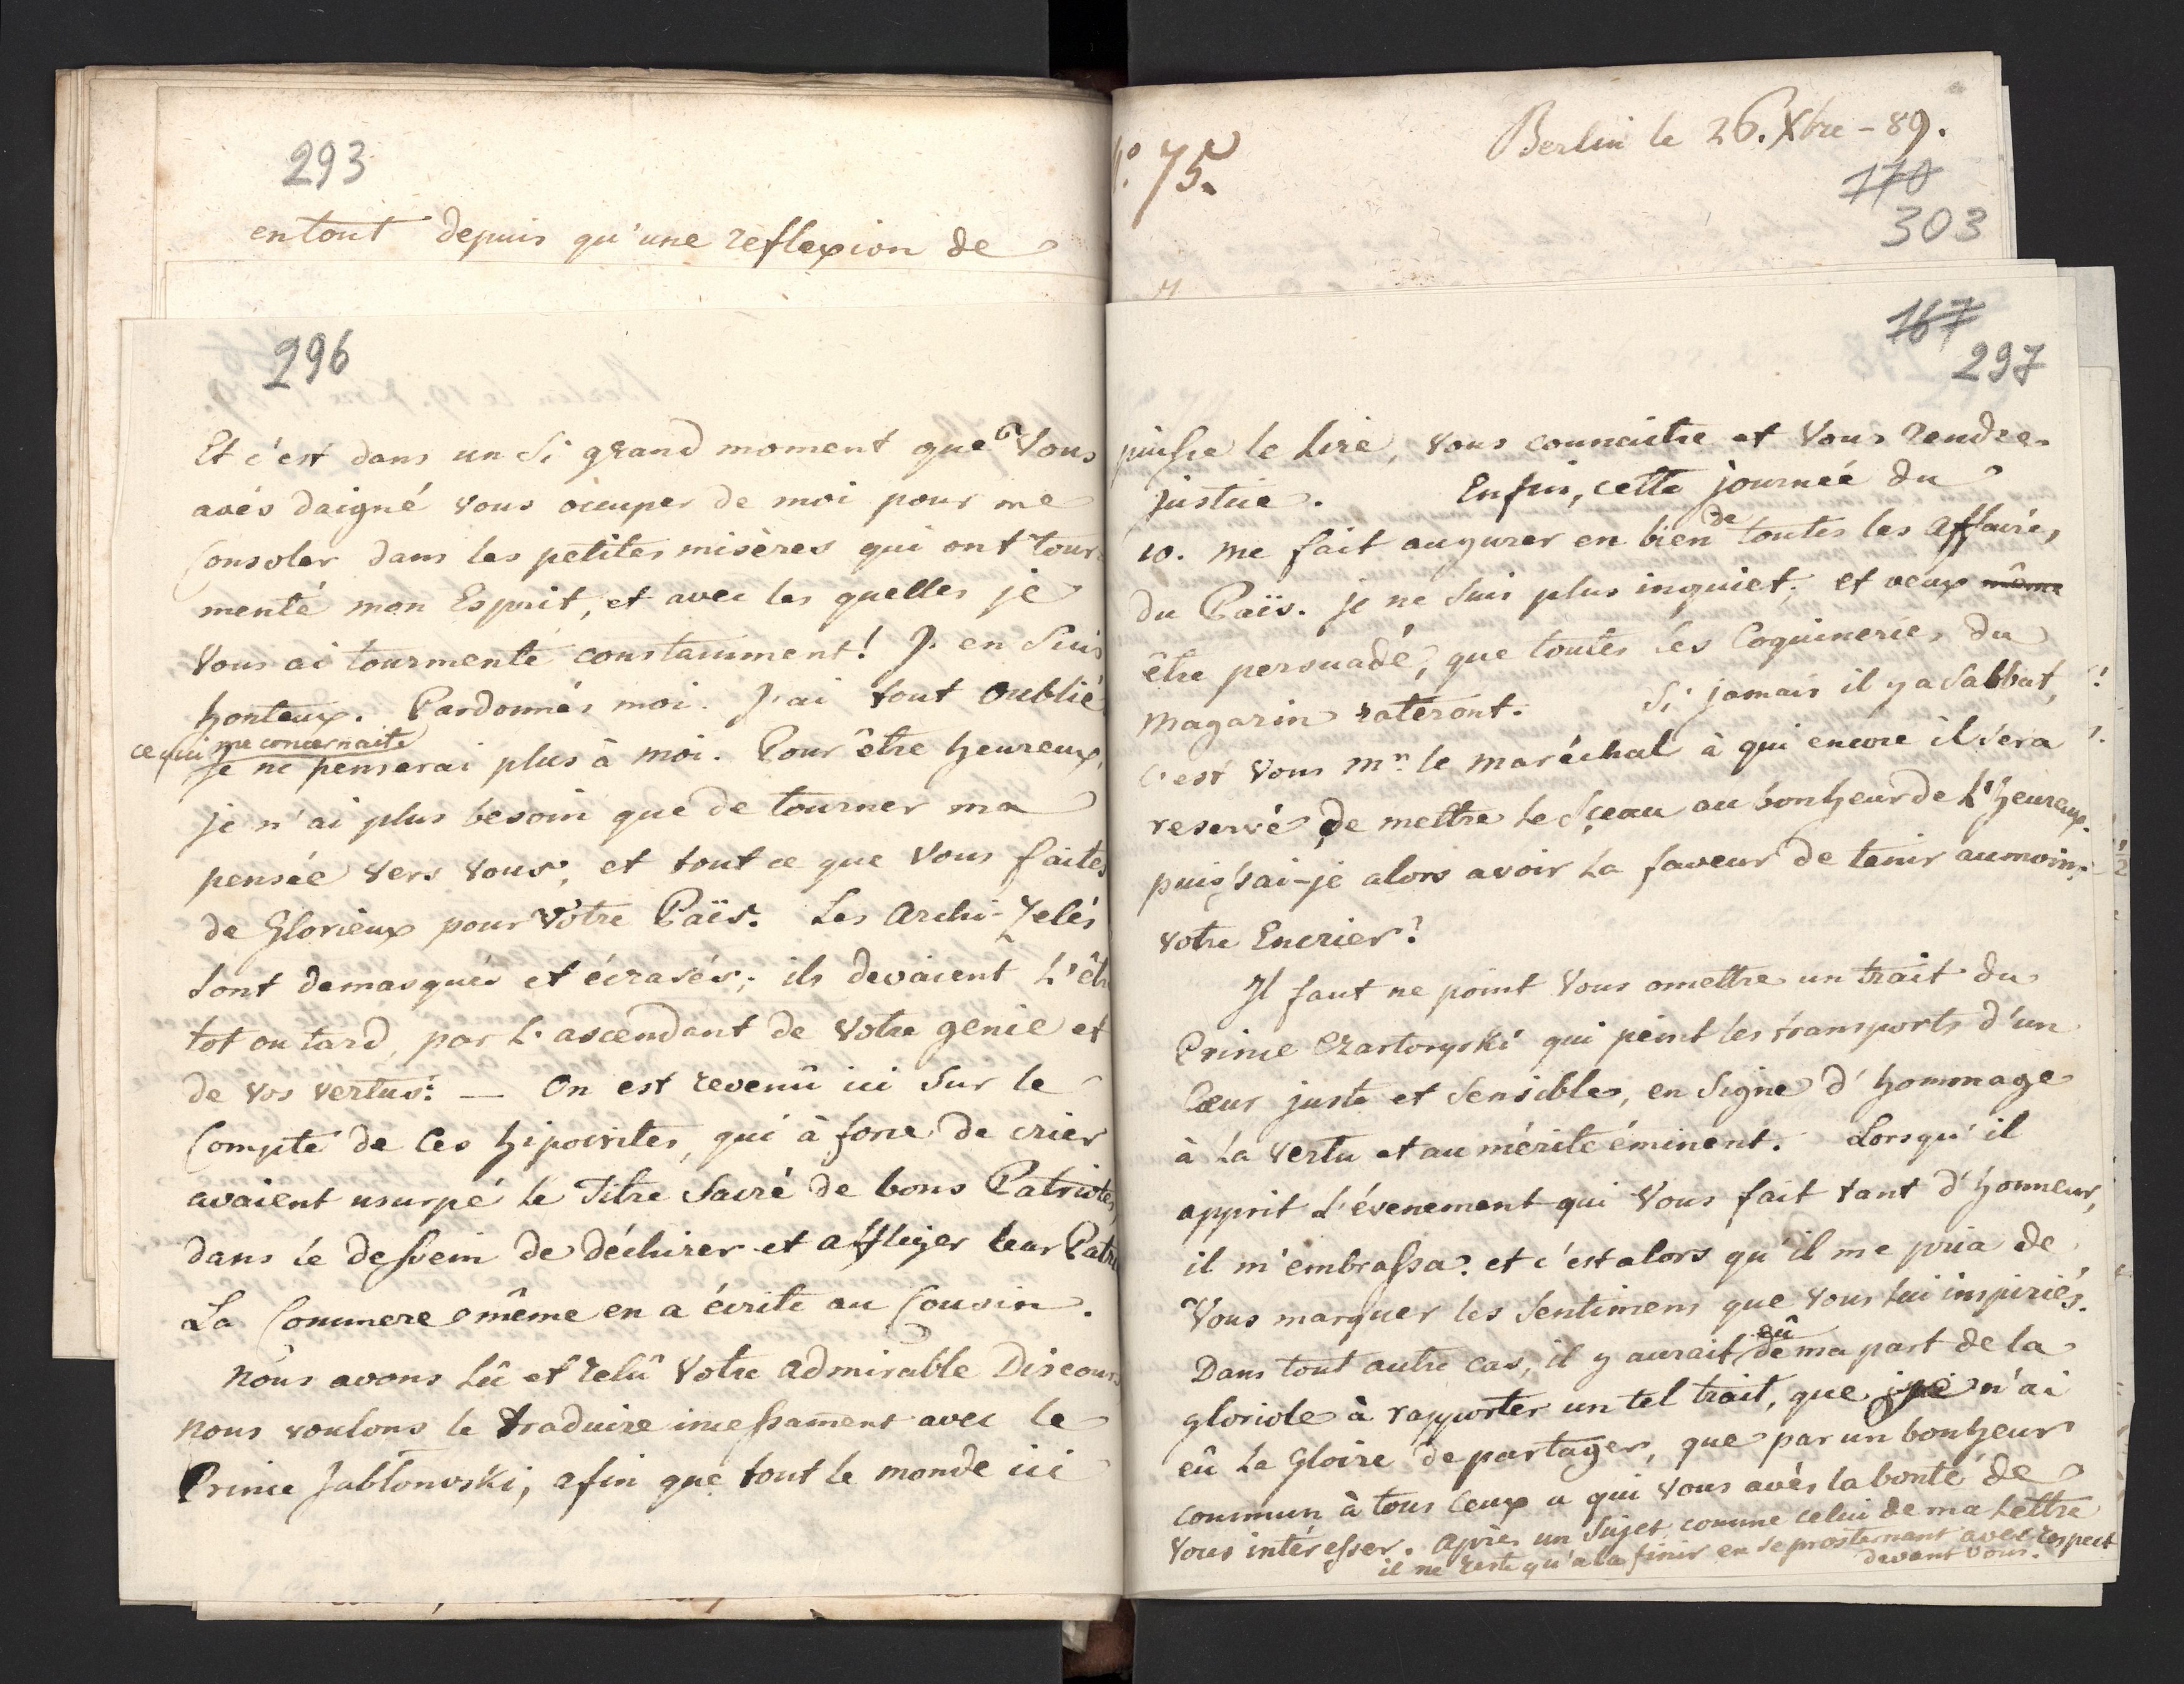 293
en tout depuis qu'une reflexion de
296
Et c'est dans un si grand moment que Vous
avés daigné vous occuper de moi pour me
Consoler dans les petites misères qui ont tour
menté mon Esprit, et avec les quelles je
Vous ai tourmenté constamment! J'en suis
honteux. Pardonnés moi. J'ai tout oublié
ce qui me concernaite
je ne penserai plus à moi. Pour être heureux,
je n'ai plus besoin que de tourner ma
pensée vers vous, et tout ce que Vous faites
de Glorieux pour Votre Païs. Les Archi-Zelés
sont demasqués et écrasés; ils devaient L'êtr
tot ou tard, par L'ascendant de votre genie et
de vos vertus: — On est revenû ici sur le
Compte de Ces hipocrites, qui à force de crier
avaient usurpé le Titre Sacré de bons Patriotes,
dans le dessein de déchirer et affliger leur Patri
La Commere même en a écrite au Cousin.
Nous avons Lû et relû Votre admirable Discours
nous voulons le traduire incessament avec le
Prince Jablonovski, afin que tout le monde ici
No. 75.
Berlin le 26. Xbre - 89.
170
303
167
297
puisse le Lire, vous connaitre et Vous rendre
justice. Enfin, cette journée du
10. me fait augurer en bien de toutes les affaires
du Païs. je ne suis plus inquiet, et veux même
être persuadé, que toutes les Coquineries du
Magazin rateront. Si jamais il y a Sabbat,
c'est Vous Mr. le Maréchal à qui encore il sera
reservé de mettre Le Sçeau au bonheur de L'heureux.
puissai-je alors avoir La faveur de tenir aumoins
votre Encrier?
Il faut ne point Vous omettre un trait du
Prince Czartoryski qui peint les transports d'un
Cœur juste et sensible, en signe d'hommage
à La vertu et au mérite éminent. Lorsqu'il
apprit L'évenement qui Vous fait tant d'honneur,
il m'embrassa: et c'est alors qu'il me pria de
Vous marquer les sentimens que vous lui inspiriés.
Dans tout autre cas, il y aurait eû de ma part de la
gloriole à rapporter un tel trait, que je n'ai
eû La Gloire de partager, que par un bonheur
commun à tous Ceux a qui vous avés la bonté de
Vous intéresser. Après un Sujet comme celui de ma Lettre
il ne reste qu'a la finir en se prosternant avec respect
devant vous.